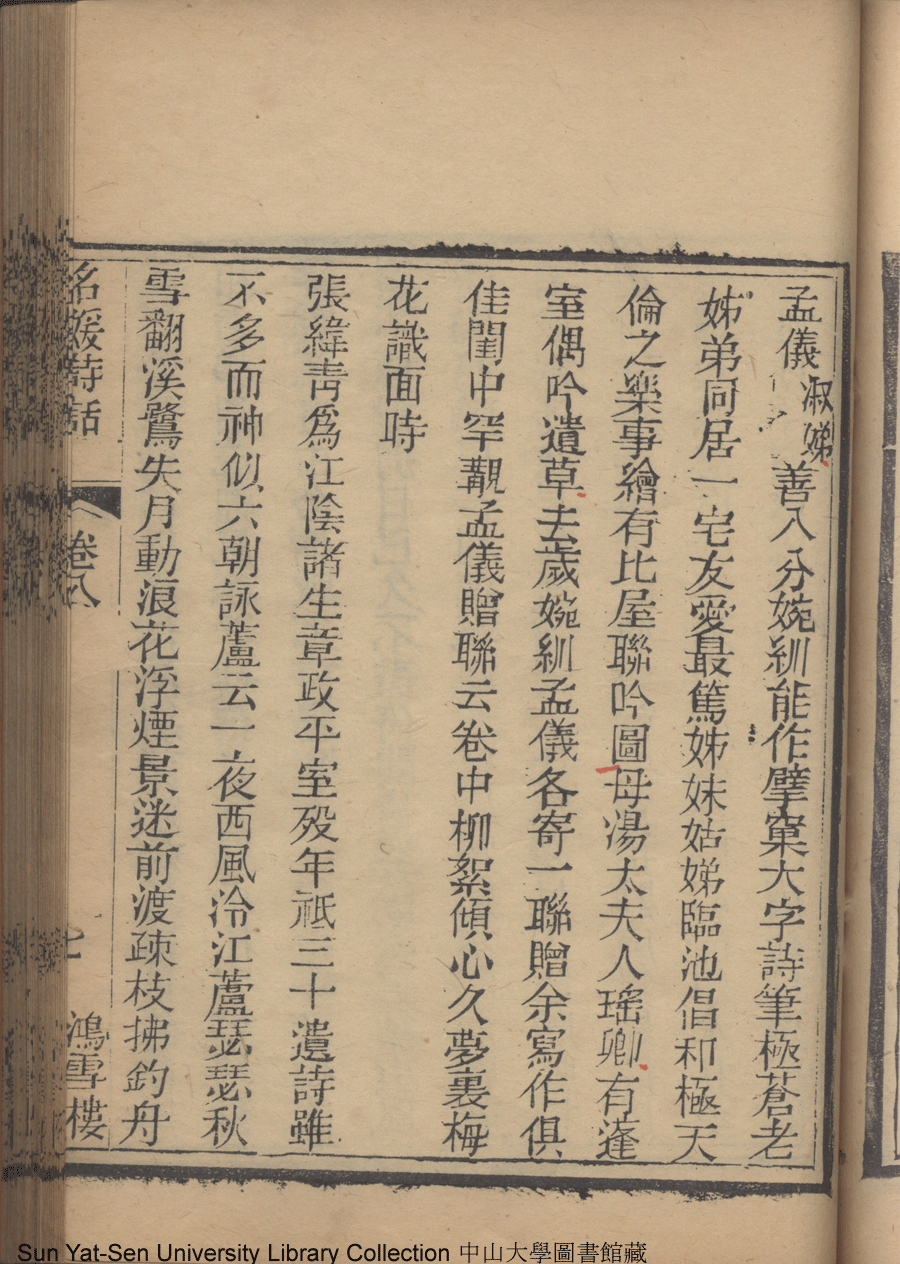 孟儀淑娣善八分婉紃能作擘窠大字詩筆極蒼老
姊弟同居一宅友愛最篤姊妹姑娣臨池倡和極天
倫之樂事繪有比屋聯吟圖母湯太夫人瑤卿有蓬
室偶吟遺草去歲婉紃孟儀各寄一聯贈余寫作俱
佳閨中罕覯孟儀贈聯云卷中柳絮傾心久夢裏梅
花識面時
張緯青爲江陰諸生章政平室歿年祗三十遺詩雖
不多而神似六朝詠蘆云一夜西風冷江蘆瑟瑟秋
雪翻溪鷺失月動浪花浮煙景迷前渡疎枝拂釣舟
名媛詩話 卷八 七 鴻雪樓
Sun Yat-Sen University Library Collection 中山大學圖書館藏